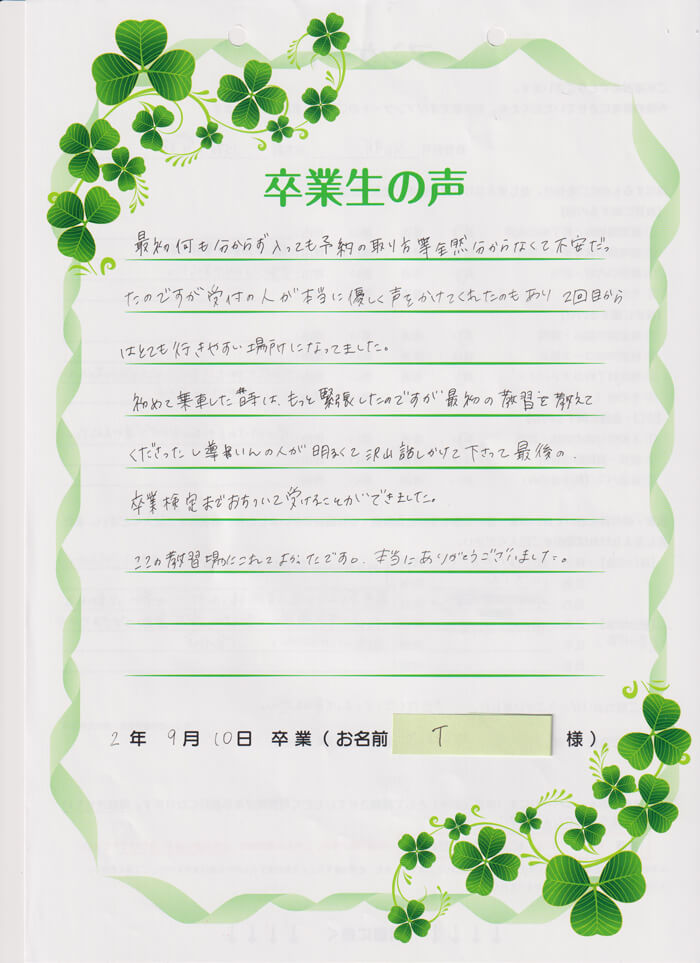 卒業生の声
最初何も分からず入っても予約の取り方等全然分からなくて不安だっ
たのですが受付の人が本当に優しく声をかけてくれたのもあり 2回目から
はとても行きやすい場所になってました。
初めて乗車した時は、もっと緊張したのですが最初の教習を教えて
くださったし導員いんの人が明るくて沢山話しかけて下さって最後の
卒業検定までおちついて受けることができました。
ココの教習場にこれてよかったです。本当にありがとうございました。
2年 9月 10日 卒業(お名前 T 様)